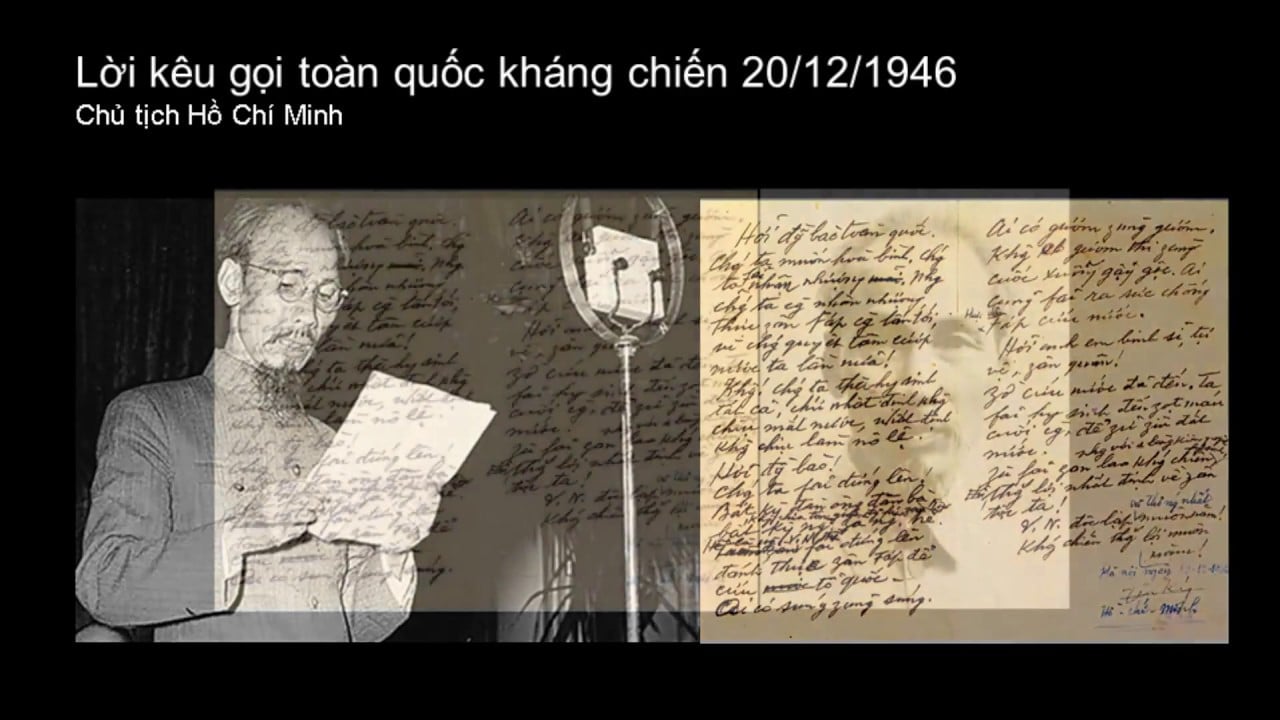 Lời kêu gọi toàn quốc kháng chiến 20/12/1946
Chủ tịch Hồ Chí Minh
Hỡi đg bào toàn quốc.
Chg ta muốn hoà bình, chg
ta fải nhân nhượng. Nhg
chg ta cg nhân nhượng
thực zân Fáp cg lấn tới,
vì chg quyết tâm cướp
nước ta lần nữa!
Khg! chg ta thà hy sinh
tất cả, chứ nhất định khg
chịu mất nước, nhất định
khg chịu làm nô lệ.
Hỡi đg bào!
Chg ta fải đứng lên!
Bất kỳ đàn ông đàn bà
fải đứng lên
đánh thực zân Fáp để
cứu tổ quốc -
Ai có súng zùng súng.
Ai có gươm zùng gươm,
Khg có gươm thì zùng
cuốc xuổng gậy gộc. Ai
cũng fải ra sức chống
Fáp cứu nước.
Hỡi anh em binh sĩ, tự
vệ, zân quân!
Zờ cứu nước đã đến. Ta
fải hy sinh đến zọt máu
cuối cg, để zữ zìn đất
nước.
Zù fải zan lao khg chiến
thg lợi nhất định về zân
tộc ta!
V. N. độc lập và thống nhất muôn năm!
Khg chiến thg lợi muôn
năm!
Hà nội ngày
Hồ-chí-Minh